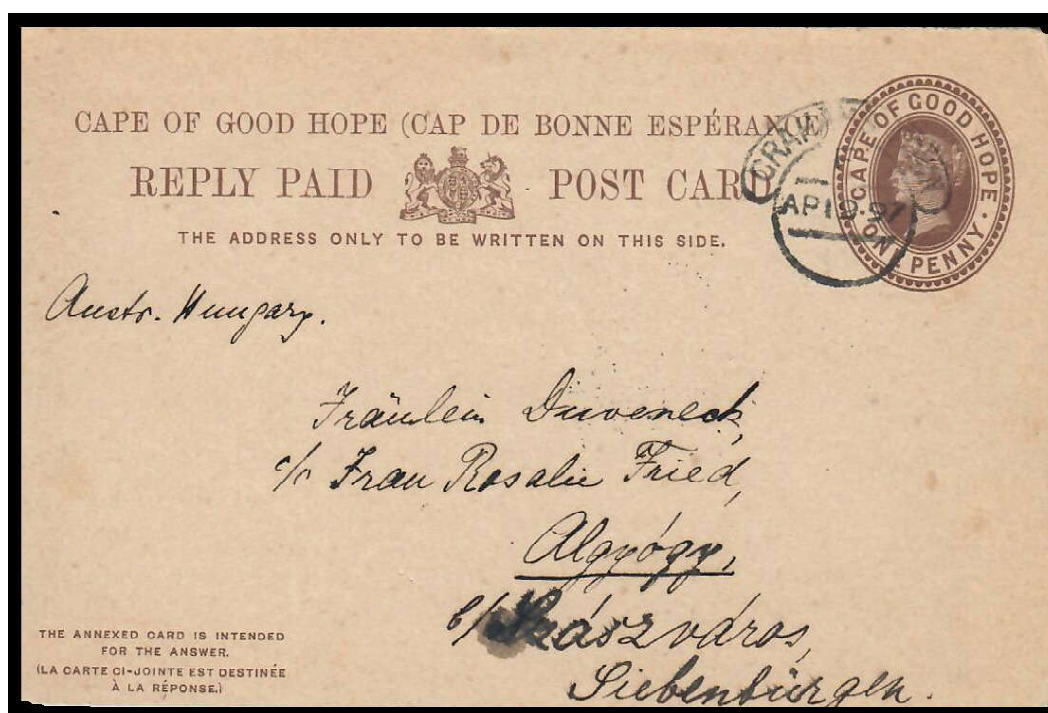 CAPE OF GOOD HOPE (CAP DE BONNE ESPÉRANCE)
REPLY PAID POST CARD
THE ADDRESS ONLY TO BE WRITTEN ON THIS SIDE.
CAPE OF GOOD HOPE.
ONE PENNY.
AP 19.97
Austr. Hungary.
Fräulein Duveneck,
c/o Frau Rosalie Fried,
Algyógy,
b/ Szászváros,
Siebenbürgen.
THE ANNEXED CARD IS INTENDED
FOR THE ANSWER.
(LA CARTE CI-JOINTE EST DESTINÉE
À LA RÉPONSE.)